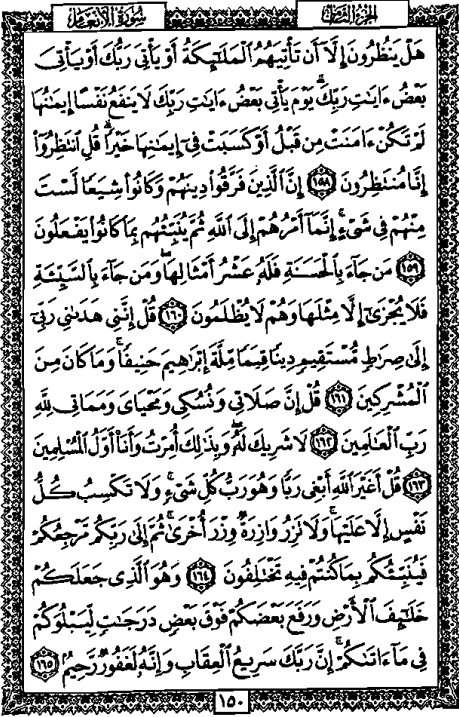 سورة الأنعام
الجزء الثامن
هَلْ يَنظُرُونَ إِلَّا أَن تَأْتِيَهُمُ الْمَلَٰٓئِكَةُ أَوْ يَأْتِيَ رَبُّكَ أَوْ يَأْتِيَ
بَعْضُ ءَايَٰتِ رَبِّكَ ۗ يَوْمَ يَأْتِي بَعْضُ ءَايَٰتِ رَبِّكَ لَا يَنفَعُ نَفْسًا إِيمَٰنُهَا
لَمْ تَكُنْ ءَامَنَتْ مِن قَبْلُ أَوْ كَسَبَتْ فِىٓ إِيمَٰنِهَا خَيْرًا ۗ قُلِ انتَظِرُوٓا۟
إِنَّا مُنتَظِرُونَ ١٥٨ إِنَّ الَّذِينَ فَرَّقُوا۟ دِينَهُمْ وَكَانُوا۟ شِيَعًا لَّسْتَ
مِنْهُمْ فِى شَىْءٍ ۚ إِنَّمَآ أَمْرُهُمْ إِلَى اللَّهِ ثُمَّ يُنَبِّئُهُم بِمَا كَانُوا۟ يَفْعَلُونَ
١٥٩ مَن جَآءَ بِالْحَسَنَةِ فَلَهُۥ عَشْرُ أَمْثَالِهَا ۖ وَمَن جَآءَ بِالسَّيِّئَةِ
فَلَا يُجْزَىٰٓ إِلَّا مِثْلَهَا وَهُمْ لَا يُظْلَمُونَ ١٦٠ قُلْ إِنَّنِى هَدَىٰنِى رَبِّىٓ
إِلَىٰ صِرَٰطٍ مُّسْتَقِيمٍ دِينًا قِيَمًا مِّلَّةَ إِبْرَٰهِيمَ حَنِيفًا ۚ وَمَا كَانَ مِنَ
الْمُشْرِكِينَ ١٦١ قُلْ إِنَّ صَلَاتِى وَنُسُكِى وَمَحْيَاىَ وَمَمَاتِى لِلَّهِ
رَبِّ الْعَٰلَمِينَ ١٦٢ لَا شَرِيكَ لَهُۥ ۖ وَبِذَٰلِكَ أُمِرْتُ وَأَنَا۠ أَوَّلُ الْمُسْلِمِينَ
١٦٣ قُلْ أَغَيْرَ اللَّهِ أَبْغِى رَبًّا وَهُوَ رَبُّ كُلِّ شَىْءٍ ۚ وَلَا تَكْسِبُ كُلُّ
نَفْسٍ إِلَّا عَلَيْهَا ۚ وَلَا تَزِرُ وَازِرَةٌ وِزْرَ أُخْرَىٰ ۚ ثُمَّ إِلَىٰ رَبِّكُم مَّرْجِعُكُمْ
فَيُنَبِّئُكُم بِمَا كُنتُمْ فِيهِ تَخْتَلِفُونَ ١٦٤ وَهُوَ الَّذِى جَعَلَكُمْ
خَلَٰٓئِفَ الْأَرْضِ وَرَفَعَ بَعْضَكُمْ فَوْقَ بَعْضٍ دَرَجَٰتٍ لِّيَبْلُوَكُمْ
فِى مَآ ءَاتَىٰكُمْ ۗ إِنَّ رَبَّكَ سَرِيعُ الْعِقَابِ وَإِنَّهُۥ لَغَفُورٌ رَّحِيمٌ ١٦٥
١٥٠